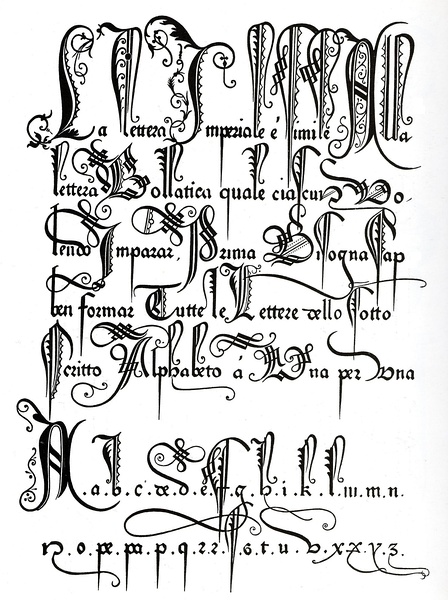 La lettera Imperiale é simile Alla
lettera Bollatica quale ciascun Vo
lendo Imparar, Prima Bisogna Sap
ben formar Tutte le Lettere dello Sotto
Scritto Alphabeto á Una per Una
A .a.b.c.d.d.e.f.g.h.i.k.l.m.m.n.
n.o.p.p.p.q.r.r.ſ.s.t.u.v.x.x.y.z.